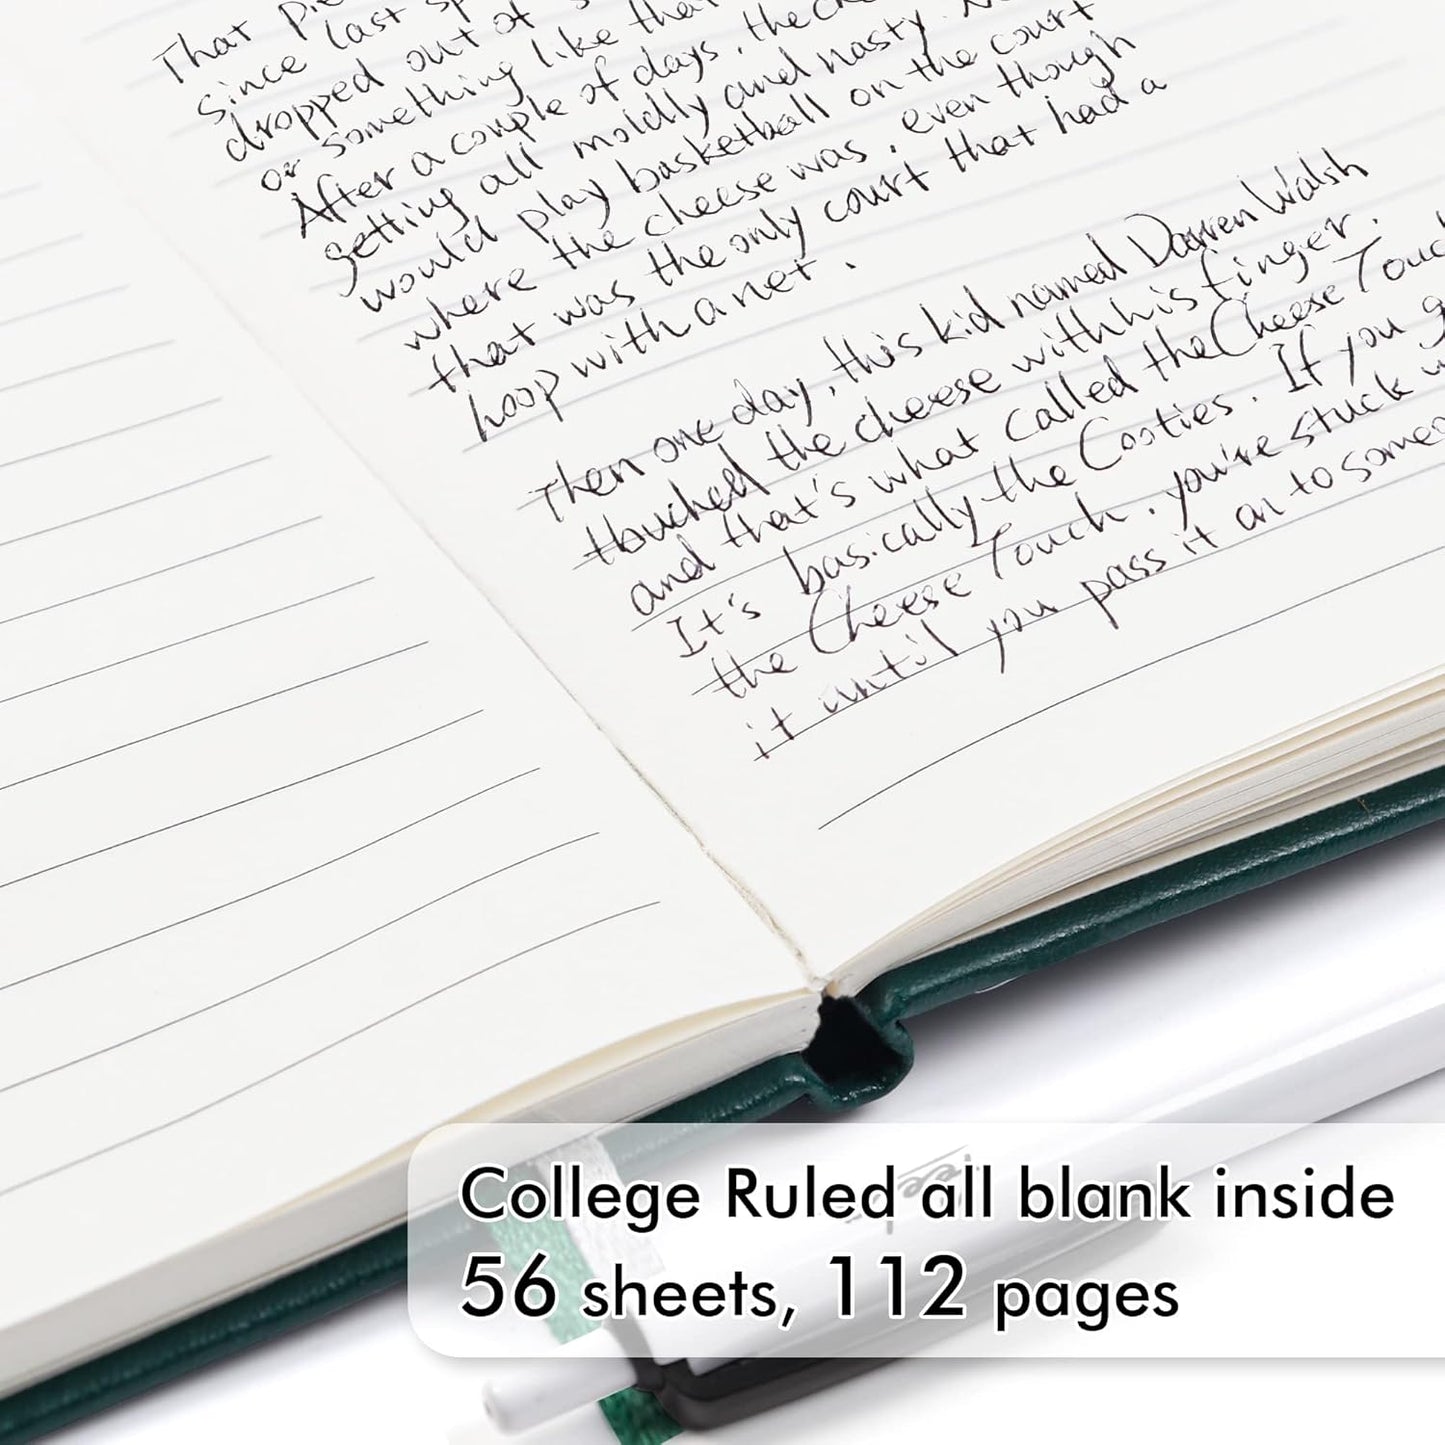 That pie
since last sp
dropped out of s
or something like that
After a couple of days, the che
getting all moldly and nasty. N
would play basketball on the court
where the cheese was, even though
that was the only court that had a
hoop with a net.
Then one day, this kid named Darren Walsh
thouched the cheese with his finger.
and that's what called the Cheese Touch
It's basically the Cooties. If you g
the Cheese Touch, you're stuck w
it until you pass it on to someo
College Ruled all blank inside
56 sheets, 112 pages